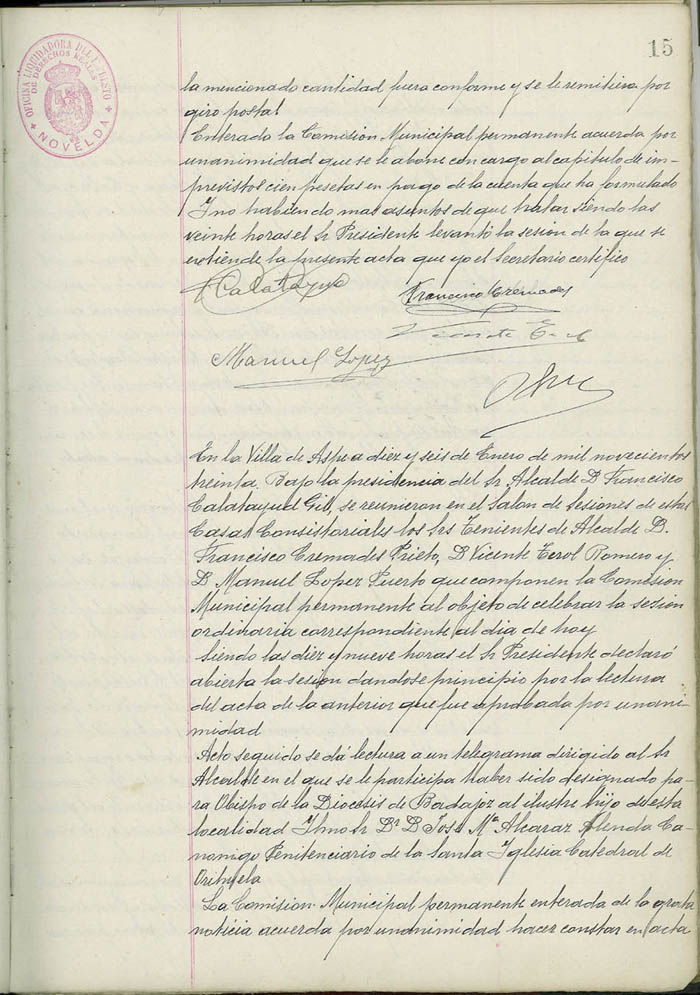 15
OFICINA LIQUIDADORA DEL IMPUESTO
DE DERECHOS REALES
NOVELDA
la mencionado cantidad fuera conforme y se le remitiera por
giro postal
Enterada la Comision Municipal permanente acuerda por
unanimidad que se le abone con cargo al capitulo de im-
previstos cien pesetas en pago de la cuenta que ha formulado
Y no habiendo mas asuntos de que tratar siendo las
veinte horas el Sr Presidente levantó la sesion de la que se
extiende la presente acta que yo el Secretario certifico
F Calatayud
Francisco Cremades
Vicente
Manuel Lopez
En la Villa de Aspe a diez y seis de Enero de mil novecientos
treinta Bajo la presidencia del Sr Alcalde D Francisco
Calatayud Gil, se reunieron en el Salon de Sesiones de estas
Casas Consistoriales los Srs Tenientes de Alcalde D.
Francisco Cremades Prieto, D Vicente Terol Romero y
D Manuel Lopez Puerto que componen la Comision
Municipal permanente al objeto de celebrar la sesion
ordinaria correspondiente al dia de hoy
Siendo las diez y nueve horas el Sr Presidente declaró
abierta la sesion dandose principio por la lectura
del acta de la anterior que fue aprobada por unani-
midad
Acto seguido se dá lectura a un telegrama dirigido al Sr
Alcalde en el que se le participa haber sido designado pa-
ra Obispo de la Diocesis de Badajoz al ilustre hijo de esta
localidad Ilmo Sr Dr D José Mª Alcaraz Alenda Ca-
nonigo Penitenciario de la Santa Iglesia Catedral de
Orihuela
La Comision Municipal permanente enterada de la grata
noticia acuerda por unanimidad hacer constar en acta